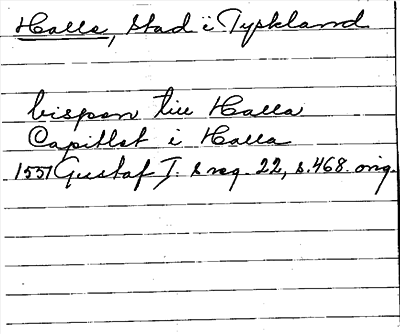 Halle, Stad i Tyskland
bispen till Halla
Capitlet i Halla
1551 Gustaf I. s reg. 22, s. 468. orig.